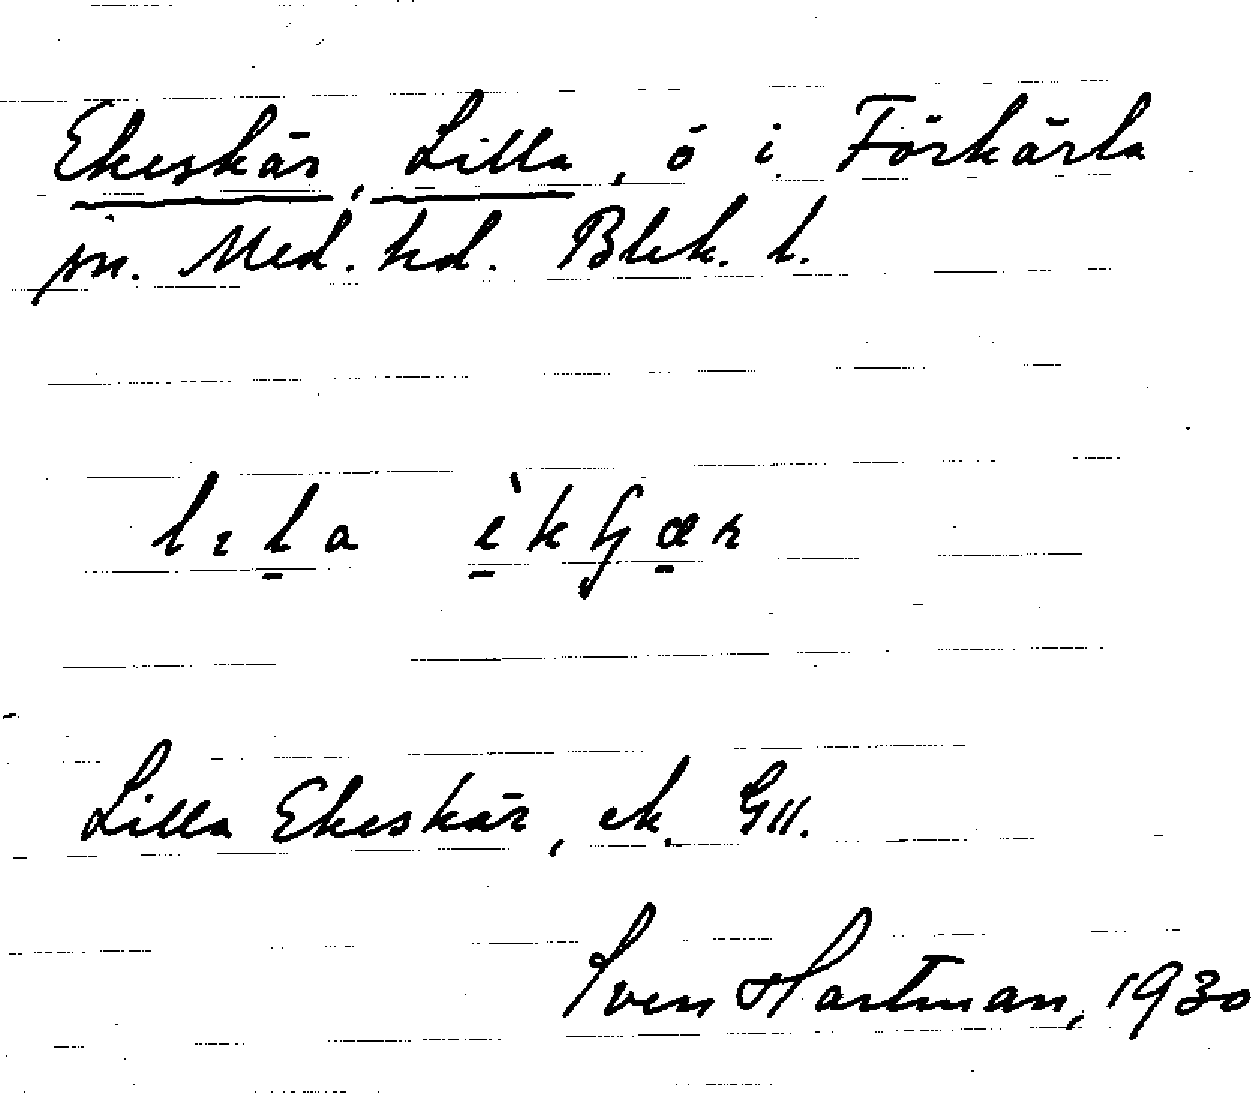 Ekeskär, Lilla, ö i Förkärla
sn. Med. hd. Blek. l.
Lilla Ekeskär, ek. G11.
Sven Hartman, 1930